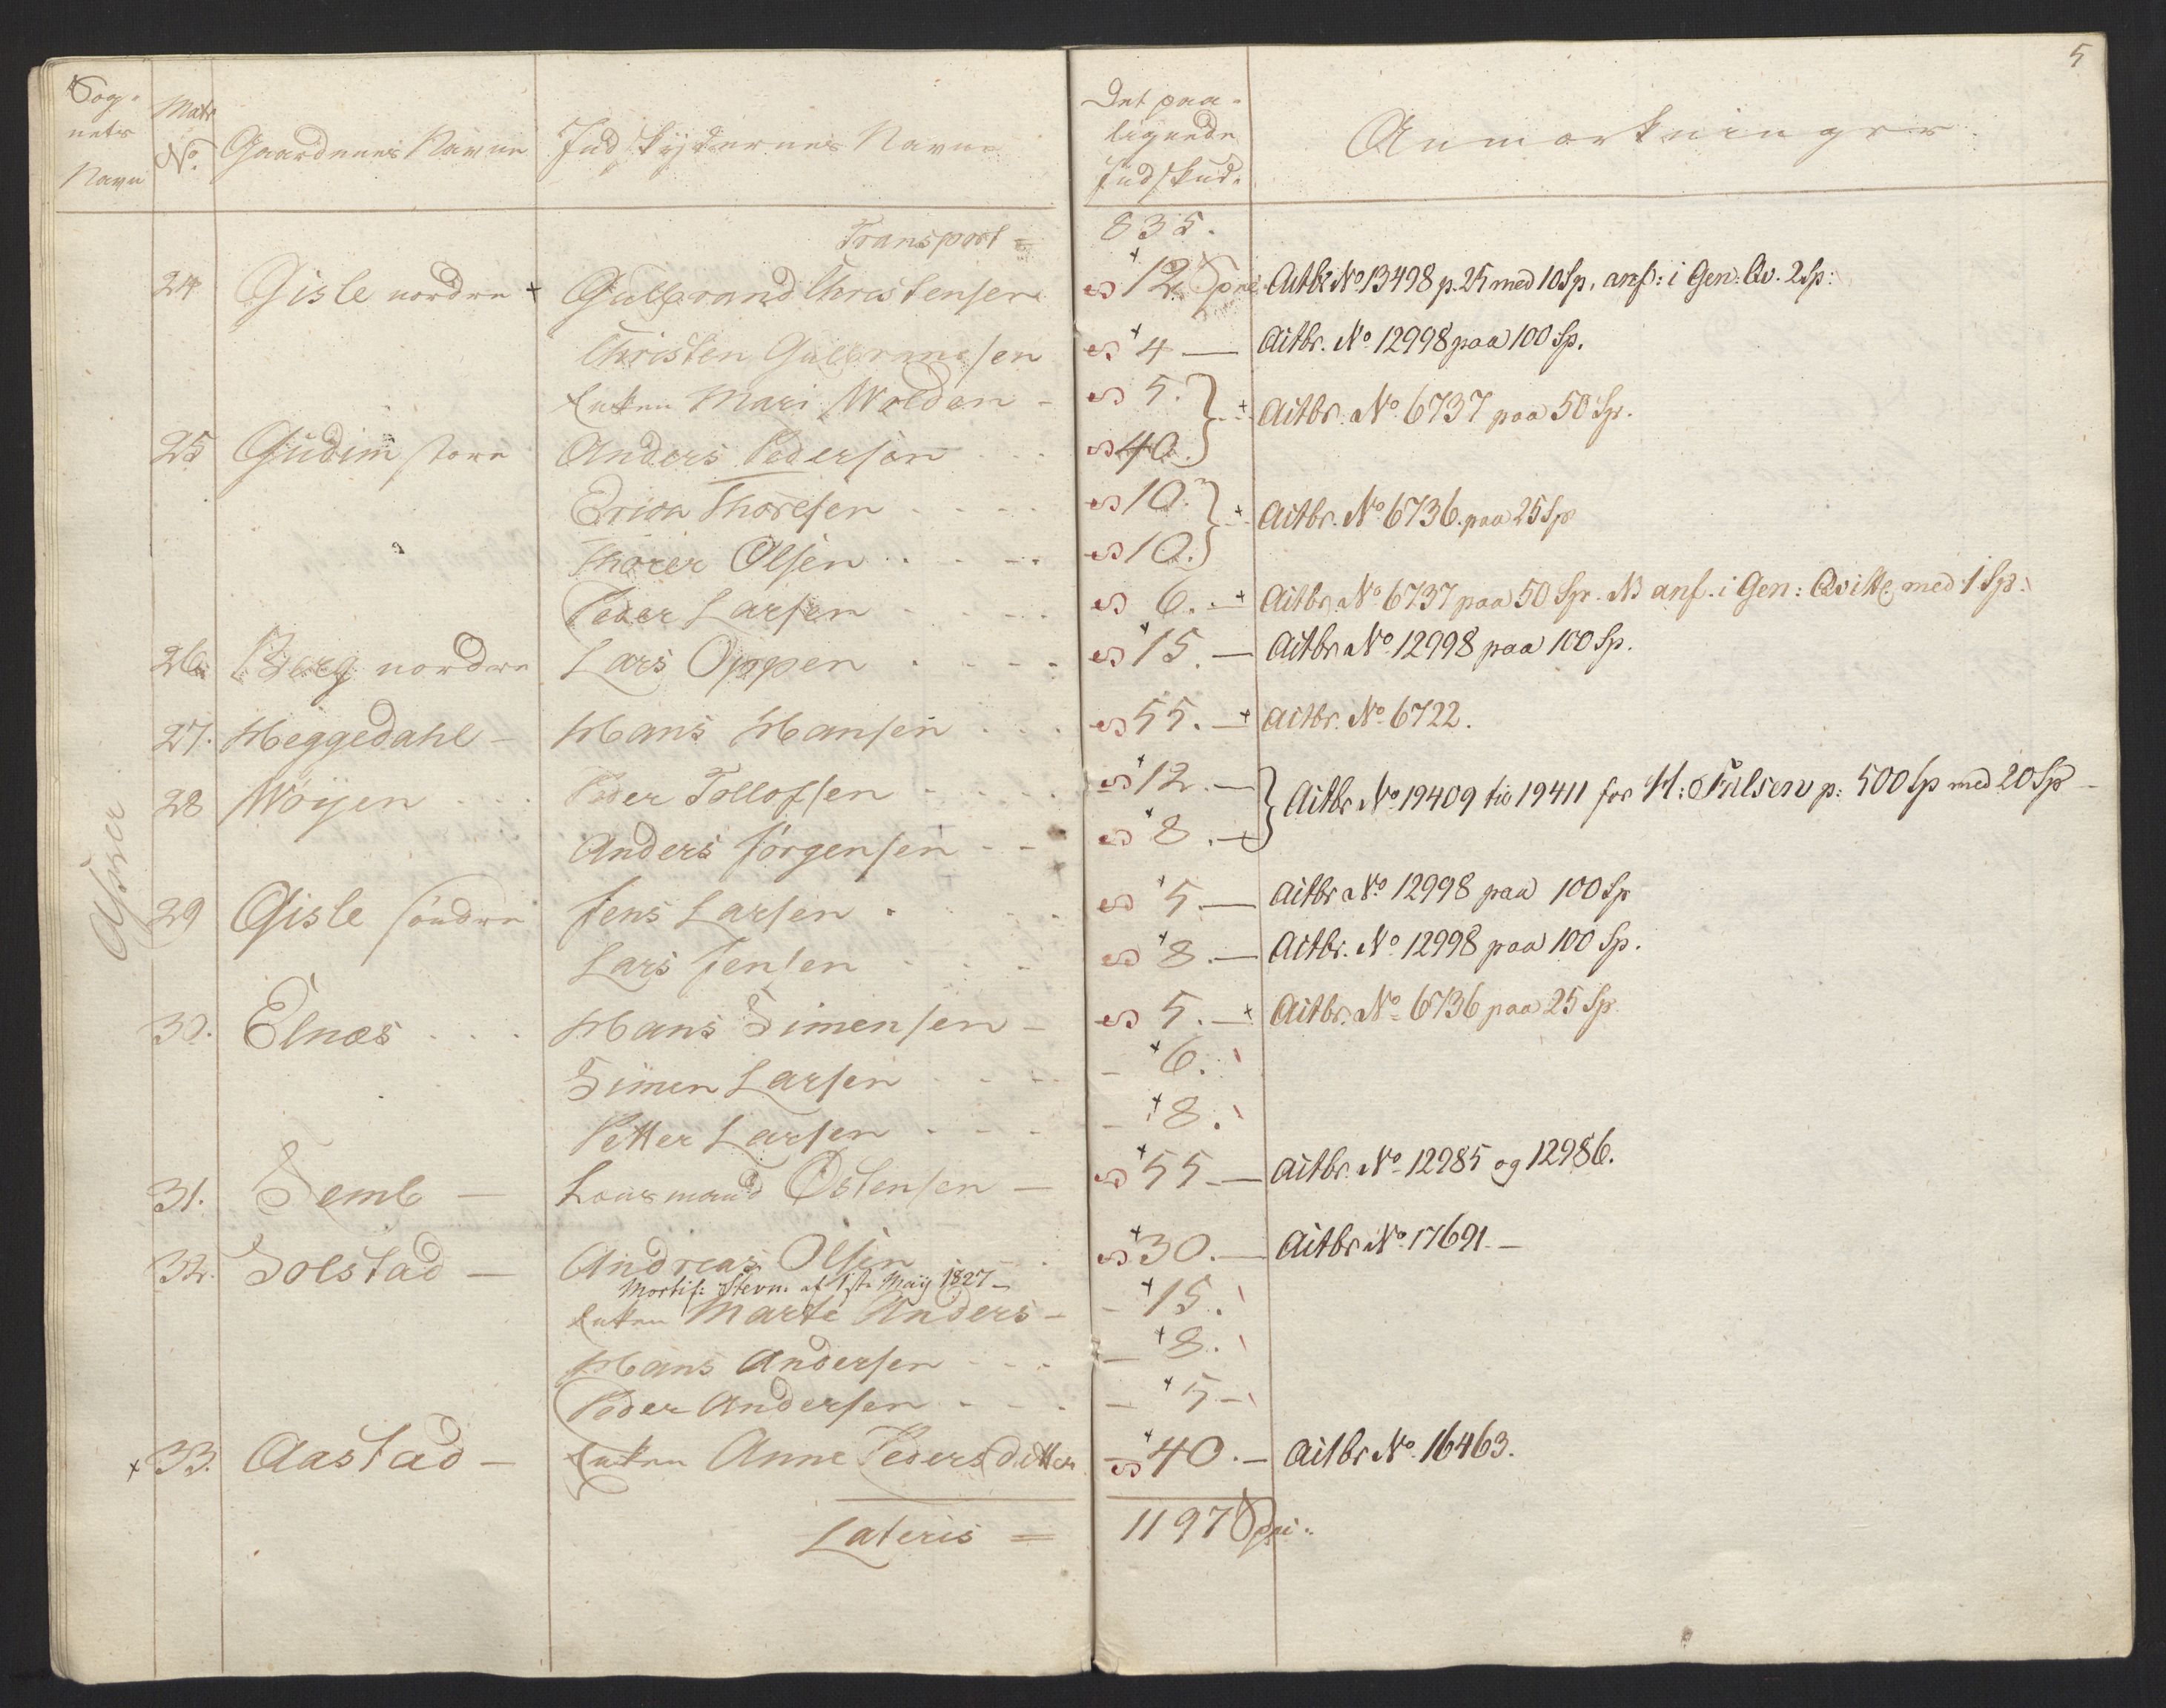 5
Sog-
nets
Navn
Matr
No.
Gaardenes Navne
Indskydernes Navne
Det paa-
lignede
Indskud.
Anmærkninger.
Asker
Transport = 835.
24 Gisle nordre + Gulbrand Christensen + 12 Spd. Actbr No 13498 p. 25 med 10 Sp, anf: i Gen: Qv. 2 Sp:
Christen Gulbransen + 4 — Actbr. No 12998 paa 100 Sp.
Enken Mari Wolden - 5. } + Actbr. No 6737 paa 50 Sp.
25 Gudim store Anders Pedersen - - - 40. }
Erica Thoresen - - - - 10. } + Actbr. No 6736. paa 25 Sp
Thorer Olsen - - - - 10. }
Peder Larsen - - - - 6. + Actbr. No 6737 paa 50 Sp. NB anf. i Gen: Qvitt. med 1 Sp.
26. Berg nordre Lars Oppen - - - + 15. — Actbr No 12998 paa 100 Sp.
27. Heggedahl - Hans Hansen - - - 55. — + Actbr. No 6722.
28 Wöyen - - - Peder Tollofsen - - - + 12. — } Actbr No 19409 til 19411 for H: Falsen p: 500 Sp med 20 Sp —
Anders Jörgensen - - + 8. — }
29 Gisle söndre Jens Larsen - - - + 5. — Actbr No 12998 paa 100 Sp
Lars Jensen - - - + 8. — Actbr. No 12998 paa 100 Sp.
30. Elnæs - - - Hans Simensen - 5. — + Actbr. No 6736 paa 25 Sp
Simen Larsen - - - - + 6.
Petter Larsen - - - - + 8.
31. Semb — Lensmand Östensen — + 55 — Actbr. No 12985 og 12986.
32. Solstad — Andreas Olsen + 30. — Actbr No 17691. —
Mortif: Stevn. af 1ste May 1827 —
Enken Marte Anders - - + 15.
Hans Andersen - - - - + 8.
Peder Andersen - - - - + 5 -
+ 33. Aastad — Enken Anne Pedersdatter + 40. — Actbr No 16463.
Lateris = 1197 Spd: